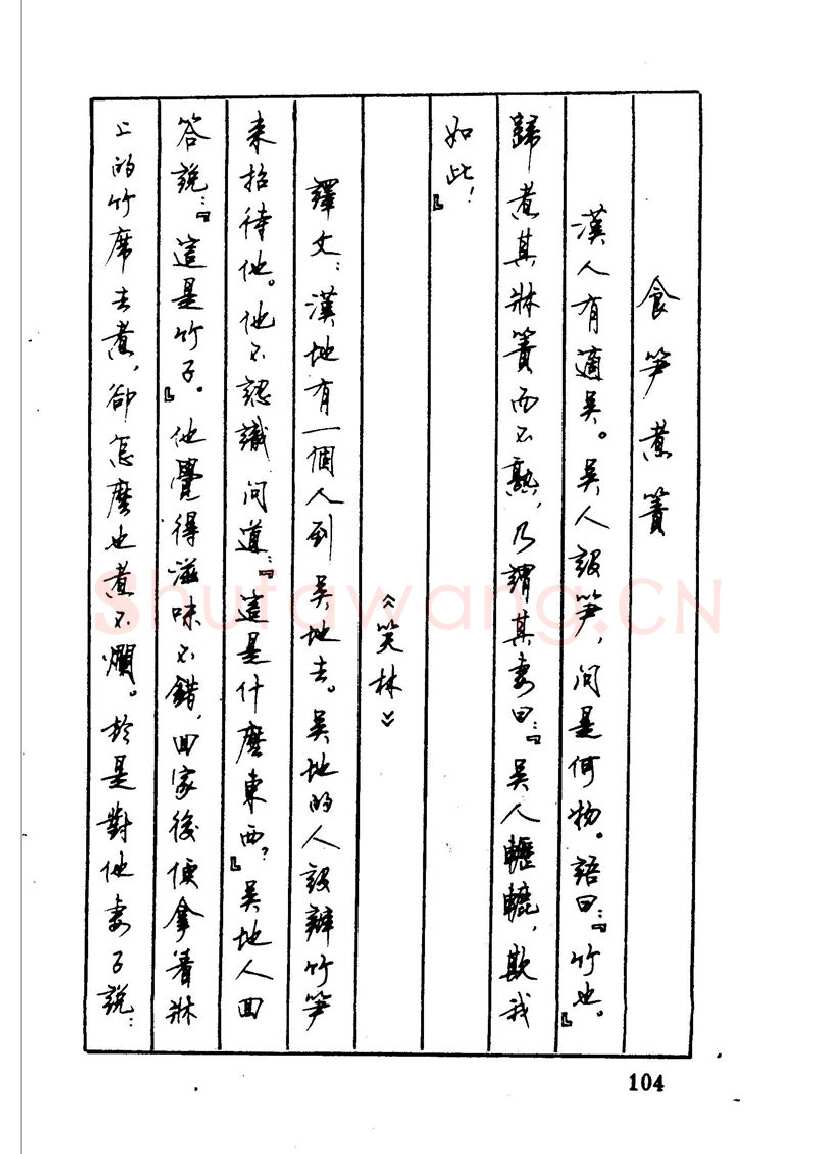 食笋煮簀
漢人有適吳。吳人設笋,問是何物。語曰:『竹也。』
歸煮其牀簀而不熟,乃謂其妻曰:『吳人轣轆,欺我
如此!』
《笑林》
譯文:漢地有一個人到吳地去。吳地的人設辦竹笋
來招待他。他不認識問道:『這是什麼東西?』吳地人回
答說:『這是竹子。』他覺得滋味不錯,回家後便拿着牀
上的竹席去煮,卻怎麼也煮不爛。於是對他妻子說:
104
Shufawang.CN